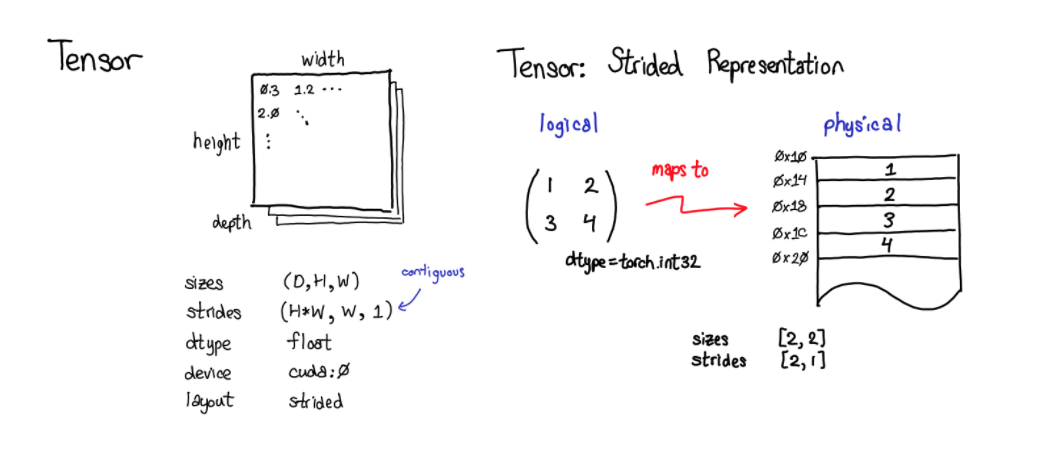 Tensor
width
0.3 1.2 ...
2.0 ⋱
height ⋮
depth
sizes (D,H,W)
contiguous
strides (H*W, W, 1)
dtype float
device cuda:0
layout strided
Tensor: Strided Representation
logical
1 2
3 4
dtype=torch.int32
maps to
physical
0x10
1
0x14
2
0x18
3
0x1C
4
0x20
sizes [2,2]
strides [2,1]